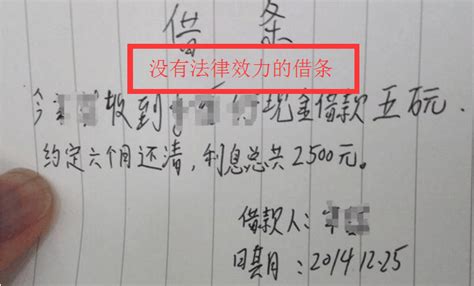 借条
没有法律效力的借条
今 收到 现金借款五万元.
约定六个月还清,利息总共2500元。
借款人:
日期:2014.12.25